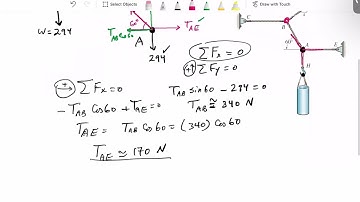 Select Objects
Draw with Touch
W = 294
60°
T_AB cos60
A
T_AE
294
ΣFx = 0
+↑ ΣFy = 0
→+ ΣFx = 0
- T_AB cos60 + T_AE = 0
T_AE = T_AB cos60 = (340) cos60
T_AE ≃ 170 N
T_AB sin60 - 294 = 0
T_AB ≅ 340 N
60°
B
E
H